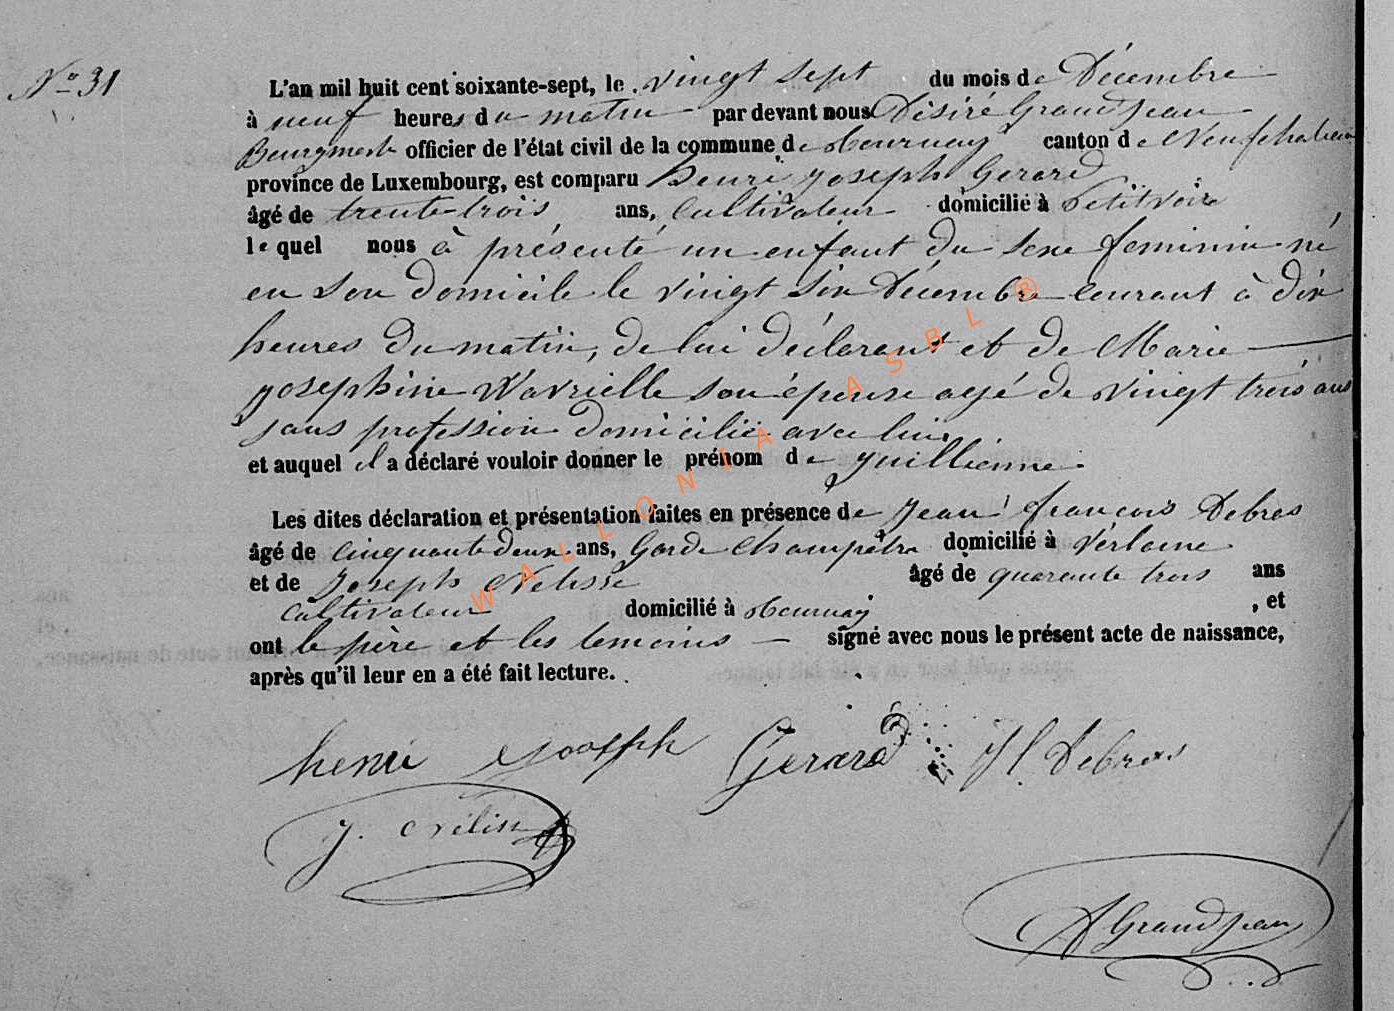 No 31
L'an mil huit cent soixante-sept, le vingt sept du mois de Décembre
à neuf heures du matin par devant nous Désiré Grandjean
Bourgmestre officier de l'état civil de la commune de Tournay canton de Neufchateau
province de Luxembourg, est comparu henri joseph Gerard
âgé de trente-trois ans, cultivateur domicilié à Petitvoir
lequel nous à présenté un enfant du sexe feminin né
en son domicile le vingt six Décembre courant à dix
heures du matin, de lui déclarant et de Marie
josephine Wavrielle son épouse agé de vingt trois ans
sans profession domicilié avec lui
et auquel il a déclaré vouloir donner le prénom de juillienne.
Les dites déclaration et présentation faites en présence de Jean françois Debras
âgé de cinquante deux ans, Garde champêtre domicilié à Verlaine
et de Joseph Nelisse âgé de quarante trois ans
cultivateur domicilié à Tournay, et
ont le père et les temoins signé avec nous le présent acte de naissance,
après qu'il leur en a été fait lecture.
henri joseph Gerard Jf. Debras
J. Nélisse
D Grandjean
WALLONIA ASBL ®